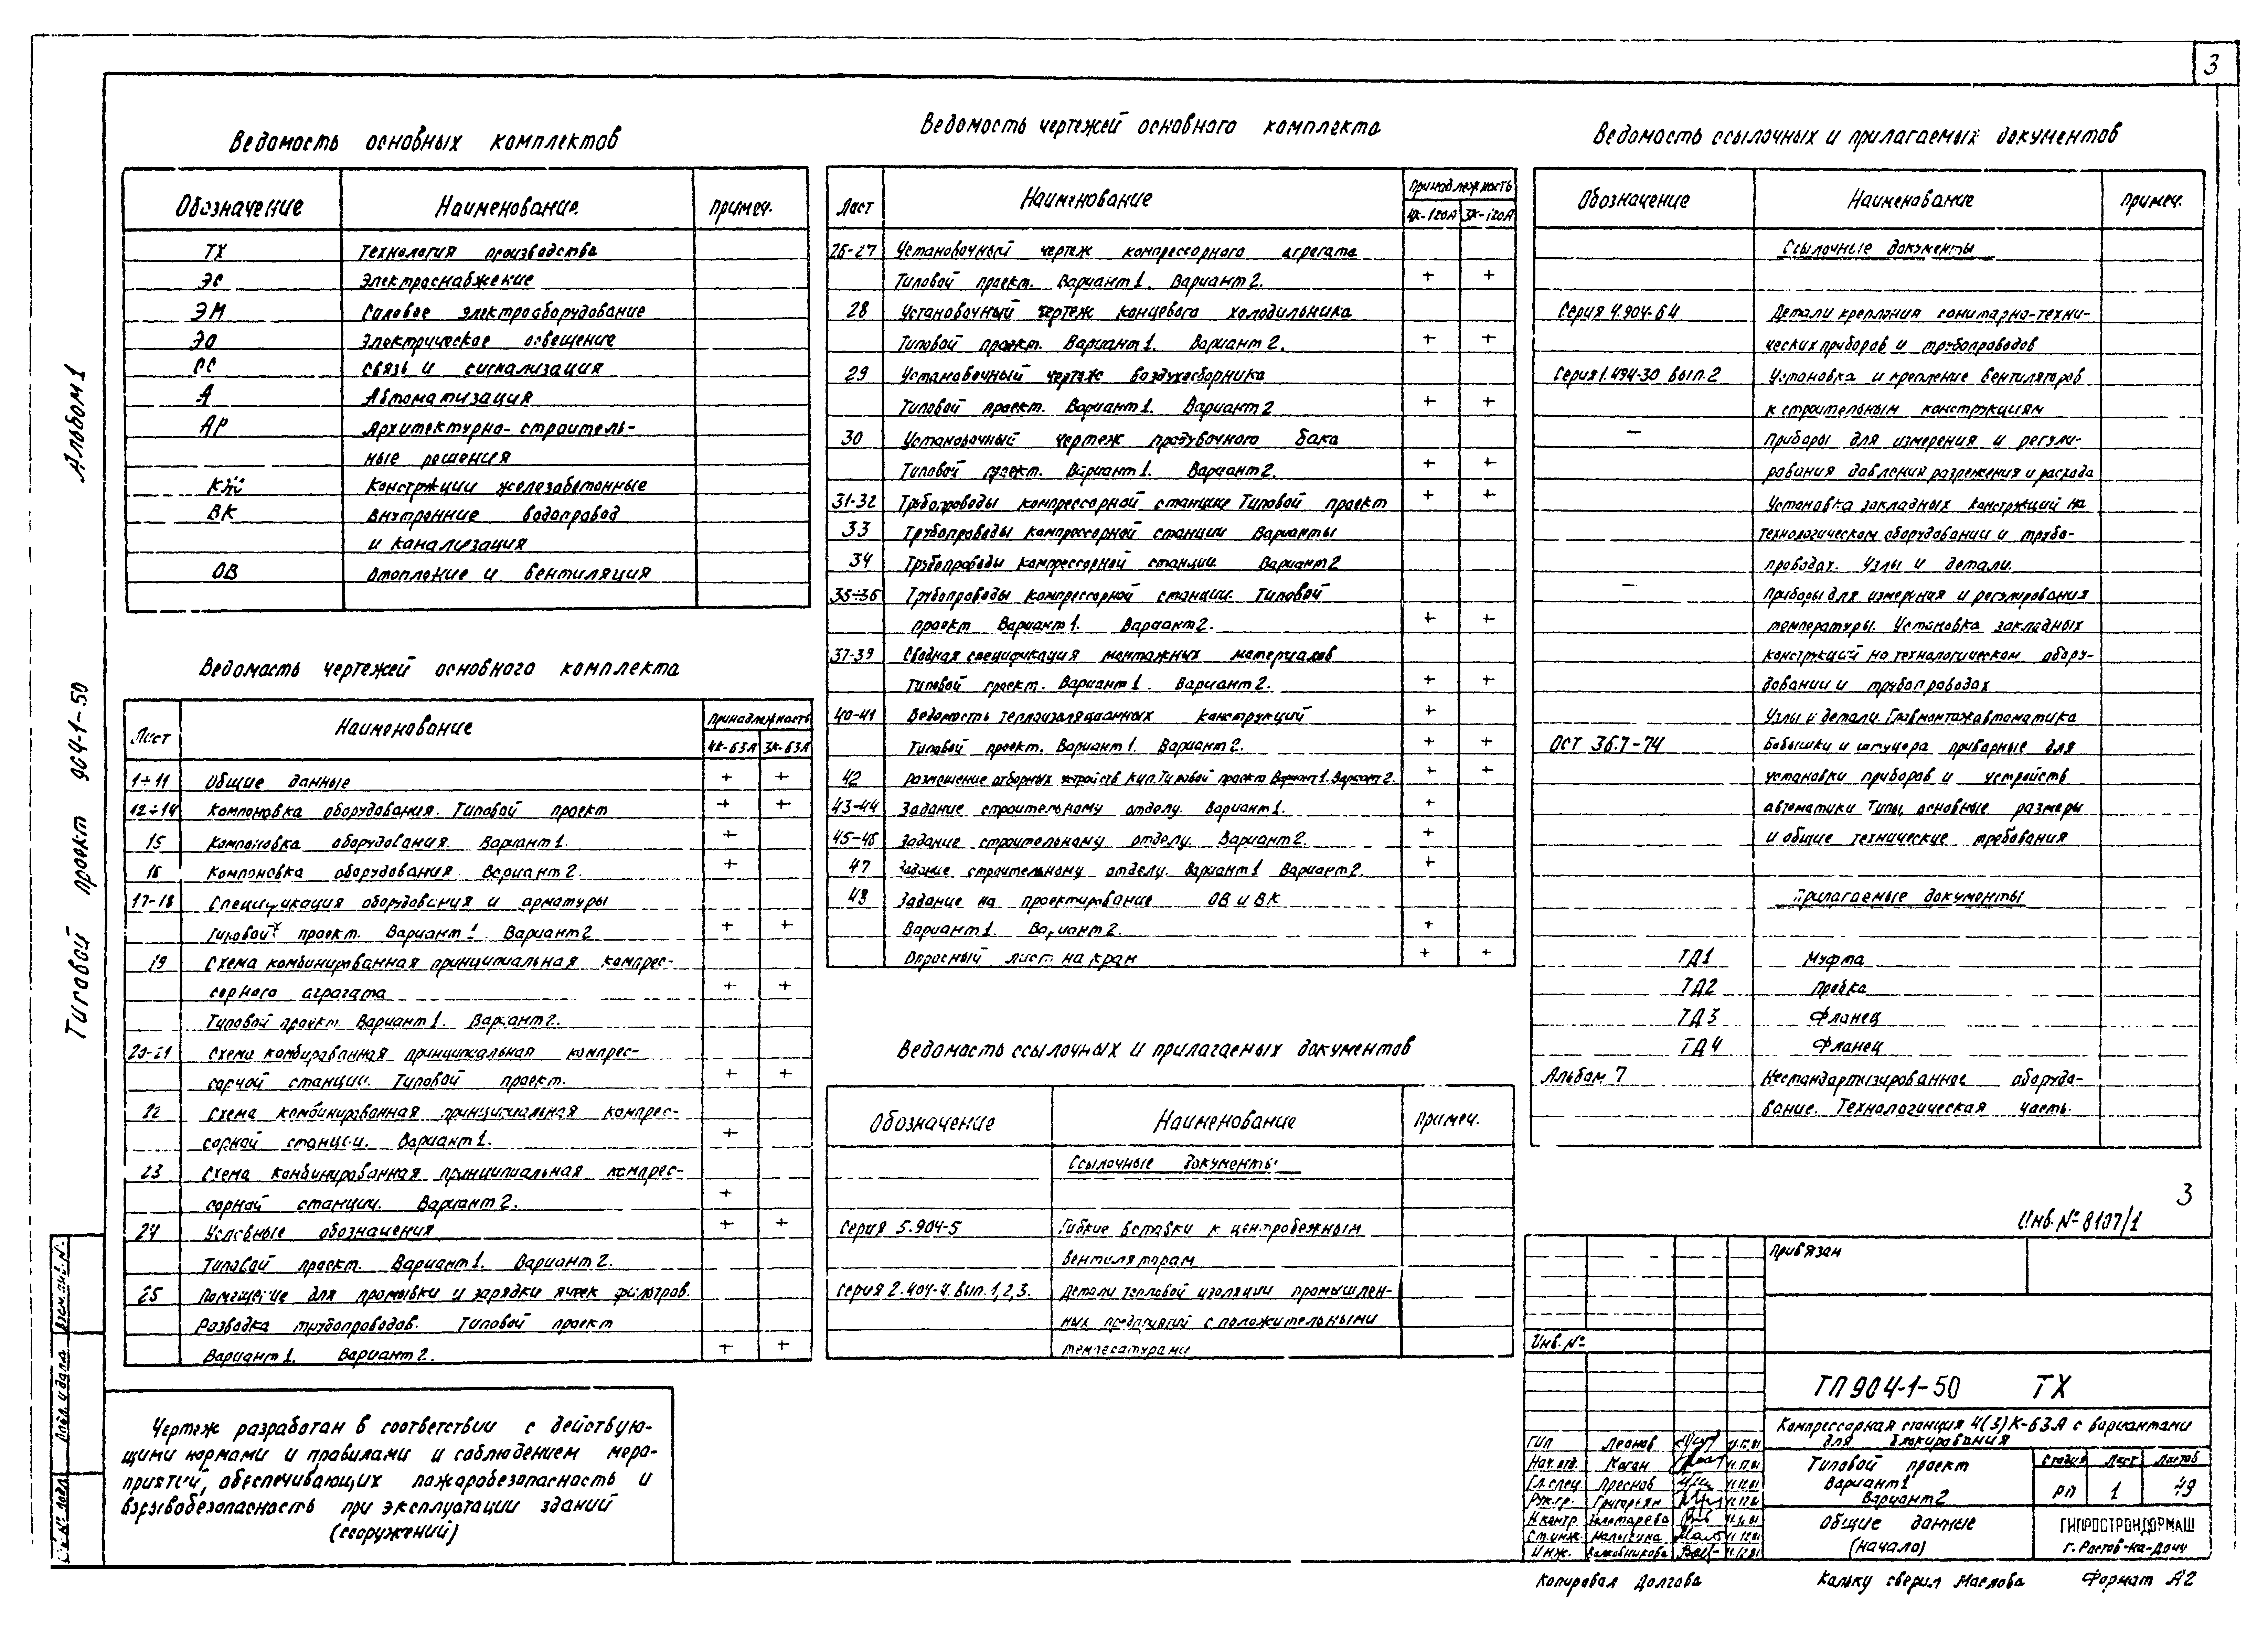 3
Альбом 1
Типовой проект 904-1-50
Ведомость основных комплектов
Обозначение Наименование Примеч.
ТХ Технология производства
ЭС Электроснабжение
ЭМ Силовое электрооборудование
ЭО Электрическое освещение
СС Связь и сигнализация
А Автоматизация
АР Архитектурно-строитель-
ные решения
КЖ Конструкции железобетонные
ВК Внутренние водопровод
и канализация
ОВ Отопление и вентиляция
Ведомость чертежей основного комплекта
Лист Наименование Принадлежность
4К-63А 3К-63А
1÷11 Общие данные + +
12÷14 Компоновка оборудования. Типовой проект + +
15 Компоновка оборудования. Вариант 1. +
16 Компоновка оборудования. Вариант 2. +
17-18 Спецификация оборудования и арматуры
Типовой проект. Вариант 1. Вариант 2 + +
19 Схема комбинированная принципиальная компрес-
сорного агрегата + +
Типовой проект Вариант 1. Вариант 2.
20-21 Схема комбированная принципиальная компрес-
сорной станции. Типовой проект. + +
22 Схема комбинированная принципиальная компрес-
сорной станции. Вариант 1. +
23 Схема комбинированная принципиальная компрес-
сорной станции. Вариант 2. +
24 Условные обозначения + +
Типовой проект. Вариант 1. Вариант 2.
25 Помещение для промывки и зарядки ячеек фильтров.
Разводка трубопроводов. Типовой проект
Вариант 1. Вариант 2. + +
Чертеж разработан в соответствии с действую-
щими нормами и правилами и соблюдением меро-
приятий, обеспечивающих пожаробезопасность и
взрывобезопасность при эксплуатации зданий
(сооружений)
Взсм.инв.№
Подп. и дата
Инв.№ подл.
Ведомость чертежей основного комплекта
Лист Наименование Принадлежность
4К-120А 3К-120А
26-27 Установочный чертеж компрессорного агрегата
Типовой проект. Вариант 1. Вариант 2. + +
28 Установочный чертеж концевого холодильника
Типовой проект. Вариант 1. Вариант 2. + +
29 Установочный чертеж воздухосборника
Типовой проект. Вариант 1. Вариант 2 + +
30 Установочный чертеж продувочного бака
Типовой проект. Вариант 1. Вариант 2. + +
31-32 Трубопроводы компрессорной станции Типовой проект + +
33 Трубопроводы компрессорной станции Варианты
34 Трубопроводы компрессорной станции. Вариант 2
35÷36 Трубопроводы компрессорной станции. Типовой
проект Вариант 1. Вариант 2. + +
37-39 Сводная спецификация монтажных материалов
Типовой проект. Вариант 1. Вариант 2. + +
40-41 Ведомость теплоизоляционных конструкций +
Типовой проект. Вариант 1. Вариант 2. + +
42 Размещение отборных устройств Кип. Типовой проект Вариант 1. Вариант 2. + +
43-44 Задание строительному отделу. Вариант 1. +
45-46 Задание строительному отделу. Вариант 2. +
47 Задание строительному отделу. Вариант 1 Вариант 2. +
48 Задание на проектирование ОВ и ВК
Вариант 1. Вариант 2. +
Опросный лист на кран + +
Ведомость ссылочных и прилагаемых документов
Обозначение Наименование Примеч.
Ссылочные документы
Серия 5.904-5 Гибкие вставки к центробежным
вентиляторам
Серия 2.404-4. вып. 1,2,3. Детали тепловой изоляции промышлен-
ных предприятий с положительными
температурами
Ведомость ссылочных и прилагаемых документов
Обозначение Наименование Примеч.
Ссылочные документы
Серия 4.904-64 Детали крепления санитарно-техни-
ческих приборов и трубопроводов
Серия 1.494-30 вып.2 Установка и крепление вентиляторов
к строительным конструкциям
— Приборы для измерения и регули-
рования давления разрежения и расхода
Установка закладных конструкций на
технологическом оборудовании и трубо-
проводах. Узлы и детали.
— Приборы для измерения и регулирования
температуры. Установка закладных
конструкций на технологическом обору-
довании и трубопроводах
Узлы и детали. Главмонтажавтоматика
ОСТ 36.7-74 Бобышки и штуцера приварные для
установки приборов и устройств
автоматики Типы, основные размеры
и общие технические требования
Прилагаемые документы
ТД1 Муфта
ТД2 Пробка
ТД3 Фланец
ТД4 Фланец
Альбом 7 Нестандартизированное оборудо-
вание. Технологическая часть.
3
Инв.№ 8107/1
Привязан
Инв.№
ТП 904-1-50 ТХ
Компрессорная станция 4(3)К-63А с вариантами
для блокирования
ГИП Леонов 11.12.81
Нач.отд. Коган 11.12.81
Гл.спец. Преснов 11.12.81
Рук.гр. Григорьян 11.12.81
Н.контр. Золотарева
Ст.инж. Малыгина 11.12.81
Инж. 11.12.81
Типовой проект
Вариант 1
Вариант 2
Стадия Лист Листов
РП 1 49
Общие данные
(начало)
ГИПРОСТРОЙДОРМАШ
г. Ростов-на-Дону
Копировал Долгова Кальку сверил Маслова Формат А2